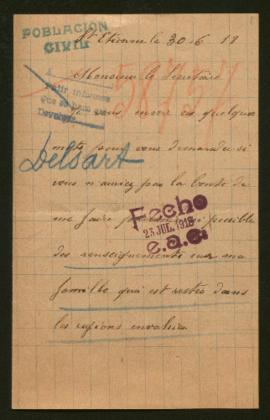 POBLACION
CIVIL
St Etienne le 30-6 18
58727
Monsieur le Secrétaire
Je vous envoie ces quelques
mots pour vous demander si
Delsart
vous n'auriez pas la bonté de
me faire possible
Fecho
23 JUL. 1918
e.a.c.
des renseignements sur ma
famille qui est restée dans
les régions envahies